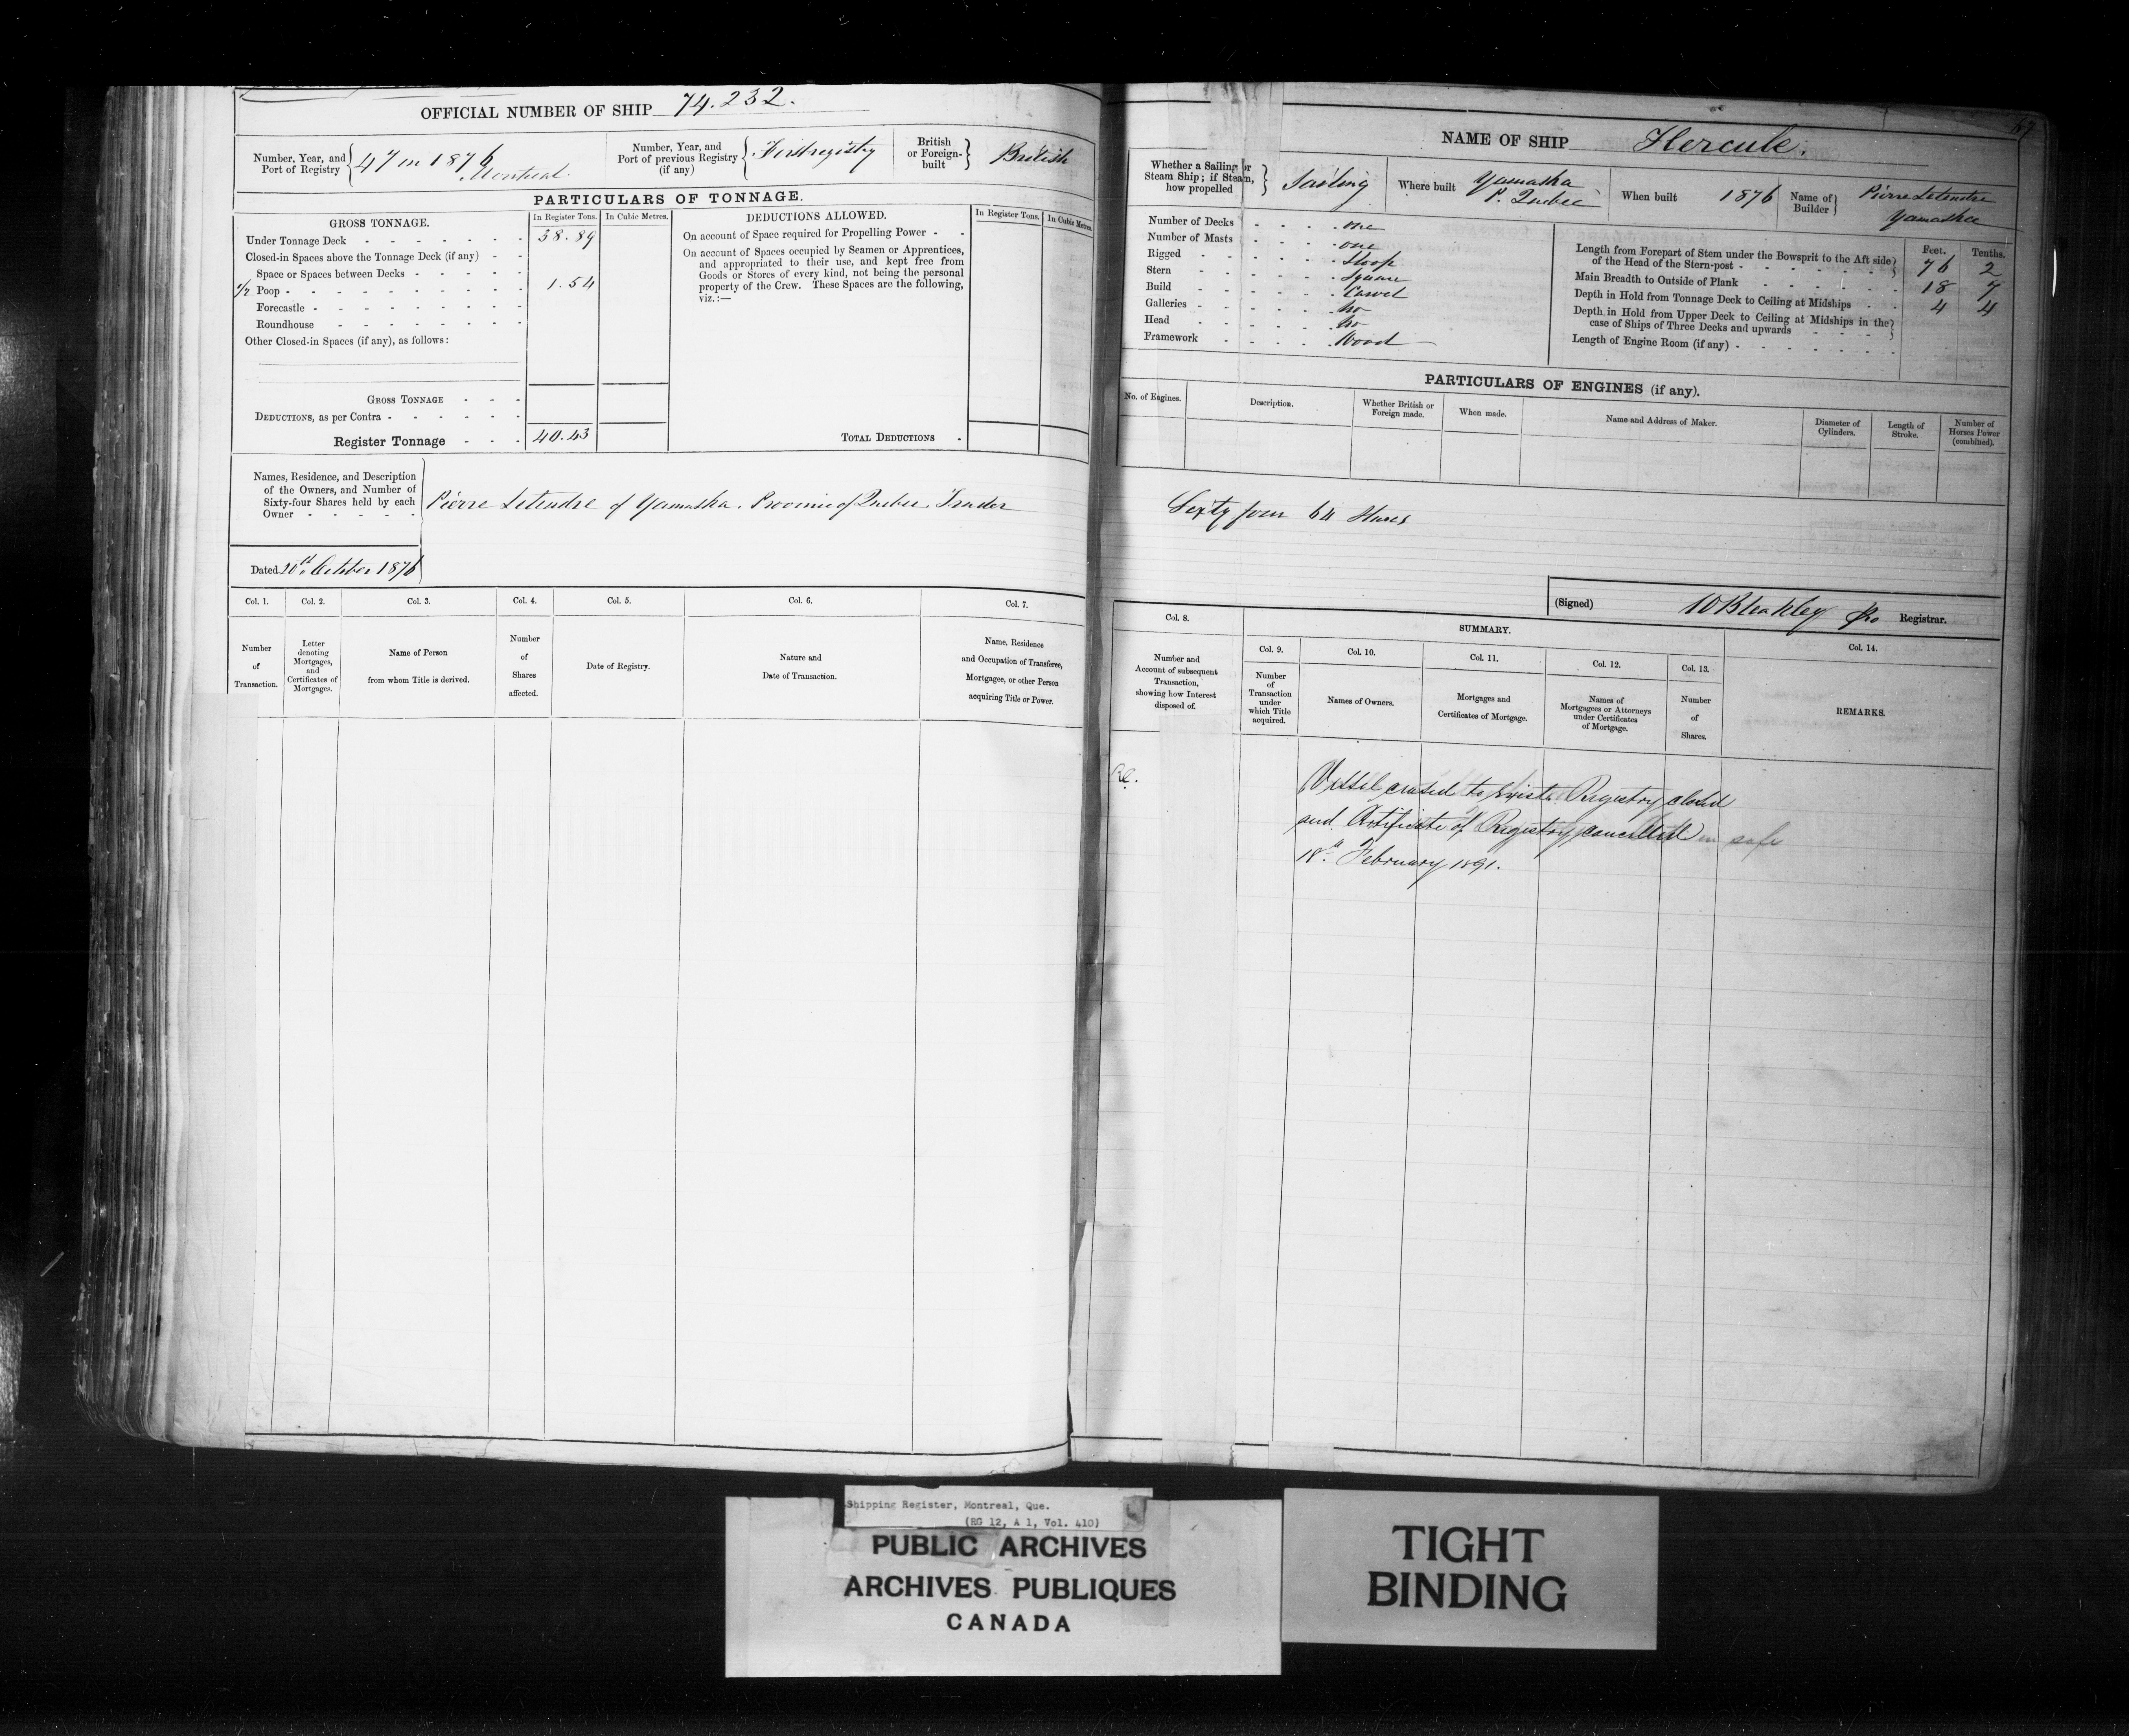 OFFICIAL NUMBER OF SHIP 74.232.
Number, Year, and Port of Registry { 47 in 1876 Montreal
Number, Year, and Port of previous Registry (if any) { First registry
British or Foreign-built } British
PARTICULARS OF TONNAGE.
GROSS TONNAGE.
In Register Tons.
In Cubic Metres.
Under Tonnage Deck - - - 38.89
Closed-in Spaces above the Tonnage Deck (if any) - -
Space or Spaces between Decks - - -
1/2 Poop - - - 1.54
Forecastle - - -
Roundhouse - - -
Other Closed-in Spaces (if any), as follows:
GROSS TONNAGE - - -
DEDUCTIONS, as per Contra - - -
Register Tonnage - - - 40.43
DEDUCTIONS ALLOWED.
In Register Tons.
In Cubic Metres.
On account of Space required for Propelling Power - -
On account of Spaces occupied by Seamen or Apprentices,
and appropriated to their use, and kept free from
Goods or Stores of every kind, not being the personal
property of the Crew. These Spaces are the following,
viz.:—
TOTAL DEDUCTIONS -
Names, Residence, and Description
of the Owners, and Number of
Sixty-four Shares held by each
Owner - - - - -
Pierre Letendre of Yamaska. Province of Quebec. Trader
Dated 20th October 1876
Col. 1.
Number
of
Transaction.
Col. 2.
Letter
denoting
Mortgages,
and
Certificates of
Mortgages.
Col. 3.
Name of Person
from whom Title is derived.
Col. 4.
Number
of
Shares
affected.
Col. 5.
Date of Registry.
Col. 6.
Nature and
Date of Transaction.
Col. 7.
Name, Residence
and Occupation of Transferee,
Mortgagee, or other Person
acquiring Title or Power.
67
NAME OF SHIP Hercule.
Whether a Sailing or
Steam Ship; if Steam,
how propelled } Sailing
Where built Yamaska
P. Quebec
When built 1876
Name of Builder } Pierre Letendre
Yamaska
Number of Decks - - - - one
Number of Masts - - - - one
Rigged - - - - Sloop
Stern - - - - Square
Build - - - - Carvel
Galleries - - - - No
Head - - - - No
Framework - - - - Wood
Feet. Tenths.
Length from Forepart of Stem under the Bowsprit to the Aft side
of the Head of the Stern-post - - - 76 2
Main Breadth to Outside of Plank - - - 18 7
Depth in Hold from Tonnage Deck to Ceiling at Midships - - 4 4
Depth in Hold from Upper Deck to Ceiling at Midships in the
case of Ships of Three Decks and upwards - - -
Length of Engine Room (if any) - - -
PARTICULARS OF ENGINES (if any).
No. of Engines.
Description.
Whether British or
Foreign made.
When made.
Name and Address of Maker.
Diameter of
Cylinders.
Length of
Stroke.
Number of
Horses Power
(combined).
Sixty four 64 Shares
(Signed) W Bleakley Pro Registrar.
Col. 8.
Number and
Account of subsequent
Transaction,
showing how Interest
disposed of.
SUMMARY.
Col. 9.
Number
of
Transaction
under
which Title
acquired.
Col. 10.
Names of Owners.
Col. 11.
Mortgages and
Certificates of Mortgage.
Col. 12.
Names of
Mortgagees or Attorneys
under Certificates
of Mortgage.
Col. 13.
Number
of
Shares.
Col. 14.
REMARKS.
Vessel ceased to exist. Registry closed
and Certificate of Registry cancelled in safe
18th February 1891.
Shipping Register, Montreal, Que.
(RG 12, A 1, Vol. 410)
PUBLIC ARCHIVES
ARCHIVES PUBLIQUES
CANADA
TIGHT
BINDING